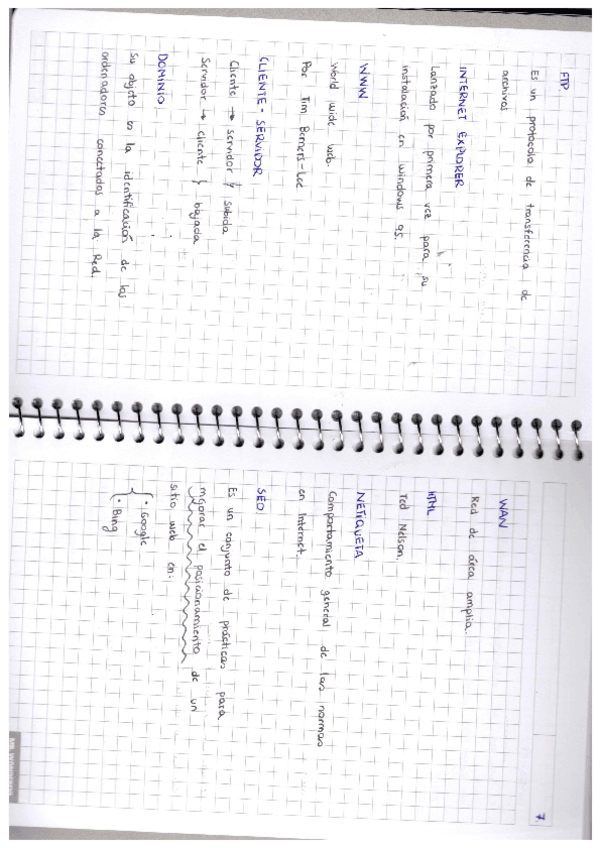 FTP.
Es un protocolo de transferencia de
archivos
INTERNET EXPLORER
Lanzado por primera vez para su
instalación en windows 95.
WWW
World wide web.
Por Tim Berners-Lee
CLIENTE - SERVIDOR
Cliente → servidor } subida
Servidor → cliente } bajada
DOMINIO
Su objeto es la identificación de los
ordenadores conectados a la Red.
7.
WAN
Red de área amplia.
HTML
Ted Nelson.
NETIQUETA
Comportamiento general de las normas
en Internet.
SEO
Es un conjunto de prácticas para
mejorar el posicionamiento de un
sitio web en:
· Google
· Bing